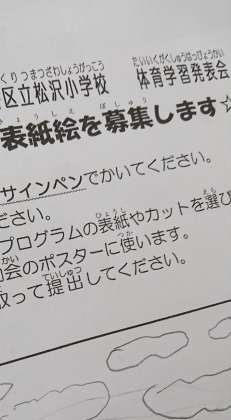 くりつまつざわしょうがっこう たいいくがくしゅうはっぴょうかい
区立松沢小学校 体育学習発表会
ひょうしえ ぼしゅう
表紙絵を募集します☆
サインペンでかいてください。
ださい。
ひょうし えら
プログラムの表紙やカットを選び
かい つか
会のポスターに使います。
ていしゅつ
取って提出してください。